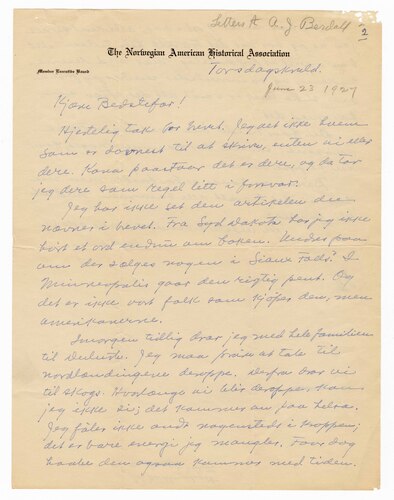 Letters to A. J. Berdall
2
The Norwegian American Historical Association
Member Executive Board
Torsdagskveld.
June 23 1927
Kjære Bedstefar!
Hjertelig takk for brevet. Jeg vet ikke hvem
som er dovnest til at skrive, enten vi eller
dere. Kona paastaar det er dere, og da tar
jeg dere som regel lett i forsvar.
Jeg har ikke set den artikelen du
nævner i brevet. Fra Syd Dakota har jeg ikke
hørt et ord endnu om boken. Undres paa
om der sælges nogen i Sioux Falls? I
Minneapolis gaar den rigtig pent. Og
det er ikke vort folk som kjøper den, men
amerikanerne.
Imorgen tidlig drar jeg med hele familien
til Duluth. Jeg maa prøve at tale til
nordlændingene deroppe. Derfra drar vi
til skogs. Hvorlænge vi blir deroppe kan
jeg ikke si; det kommer an paa helsa.
Jeg føler ikke ondt nogensteds i kroppen;
det er bare energi jeg mangler. Tror dog
den ogsaa kommer med tiden.